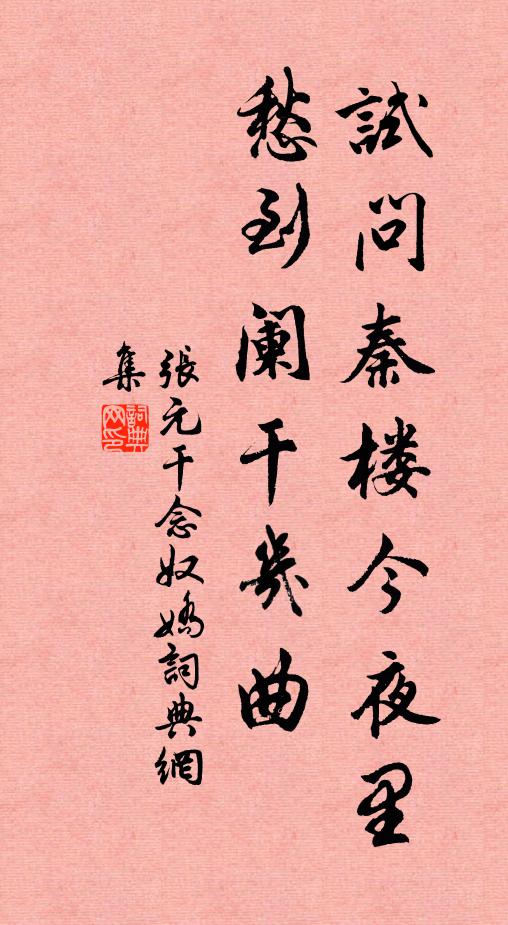 試問秦楼今夜里
愁到闌干幾曲
張元干念奴嬌詞典網
集
詞典网印